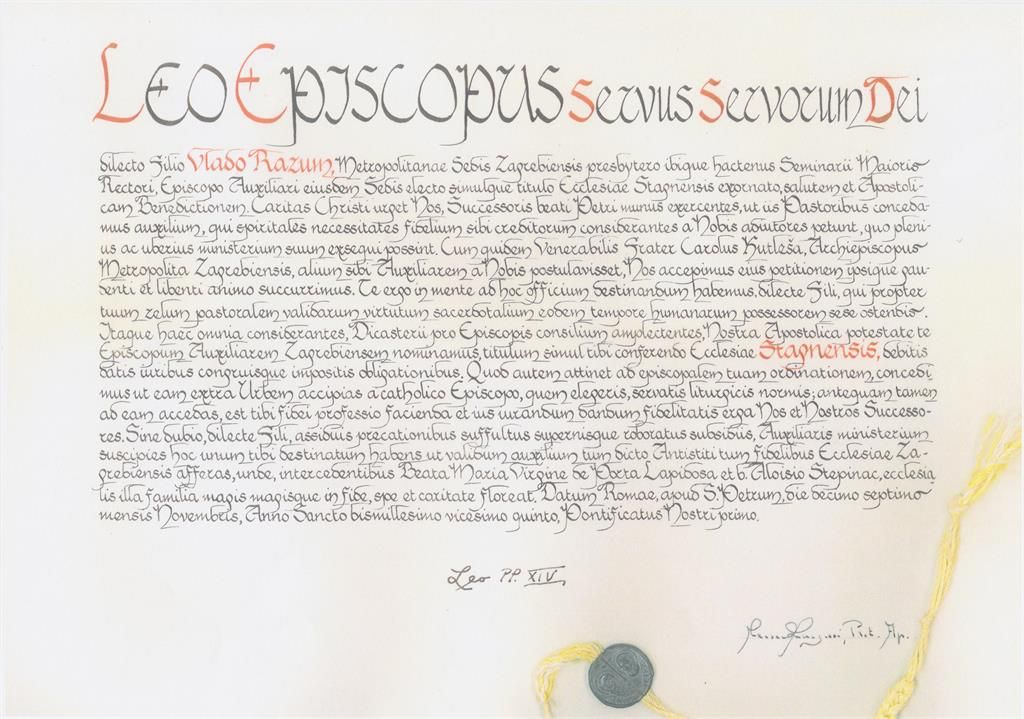 Leo Episcopus Servus Servorum Dei
dilecto Filio Vlado Razum, Metropolitanae Sedis Zagrebiensis presbytero ibique hactenus Seminarii Maioris
Rectori, Episcopo Auxiliari eiusdem Sedis electo simulque titulo Ecclesiae Stagnensis exornato, salutem et Apostoli-
cam Benedictionem. Caritas Christi urget Nos, Successoris beati Petri munus exercentes, ut iis Pastoribus conceda-
mus auxilium, qui spiritales necessitates fidelium sibi creditorum considerantes a Nobis adiutores petunt, quo pleni-
us ac uberius ministerium suum exsequi possint. Cum quidem Venerabilis Frater Carolus Kutleša, Archiepiscopus
Metropolita Zagrebiensis, alium sibi Auxiliarem a Nobis postulavisset, Nos accepimus eius petitionem ipsique gau-
denti et libenti animo succurrimus. Te ergo in mente ad hoc officium destinandum habemus, dilecte Fili, qui propter
tuum zelum pastoralem validarum virtutum sacerdotalium eodem tempore humanarum possessorem sese ostendis.
Itaque haec omnia considerantes, Dicasterii pro Episcopis consilium amplectentes, Nostra Apostolica potestate te
Episcopum Auxiliarem Zagrebiensem nominamus, titulum simul tibi conferendo Ecclesiae Stagnensis, debitis
datis iuribus congruisque impositis obligationibus. Quod autem attinet ad episcopalem tuam ordinationem, concedi-
mus ut eam extra Urbem accipias a catholico Episcopo, quem elegeris, servatis liturgicis normis; antequam tamen
ad eam accedas, est tibi fidei professio facienda et ius iurandum dandum fidelitatis erga Nos et Nostros Successo-
res. Sine dubio, dilecte Fili, assiduis precationibus suffultus supernisque roboratus subsidiis, Auxiliaris ministerium
suscipies hoc unum tibi destinatum habens ut validum auxilium tum dicto Antistiti tum fidelibus Ecclesiae Za-
grebiensis afferas, unde, intercedentibus Beata Maria Virgine de Porta Lapidosa et b. Aloisio Stepinac, ecclesia
lis illa familia magis magisque in fide, spe et caritate floreat. Datum Romae, apud S. Petrum, die decimo septimo
mensis Novembris, Anno Sancto bismillesimo vicesimo quinto, Pontificatus Nostri primo.
Leo PP. XIV
Prot. Ap.